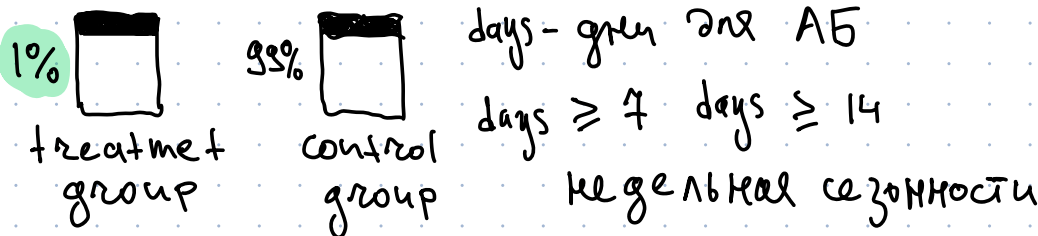 1%
99%
treatmet
group
control
group
days - дней для АБ
days ≥ 7 days ≥ 14
недельная сезонности